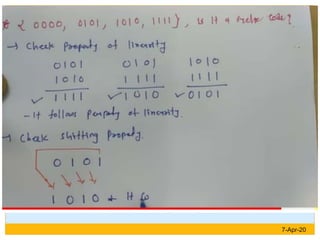 * { 0000, 0101, 1010, 1111 }, is it a cyclic code?
→ Check Property of linearity
0101 0101 1010
1010 1111 1111
✓ 1111 ✓ 1010 ✓ 0101
- It follows property of linearity.
→ Check shifting property.
0 1 0 1
1 0 1 0 & It fo
7-Apr-20